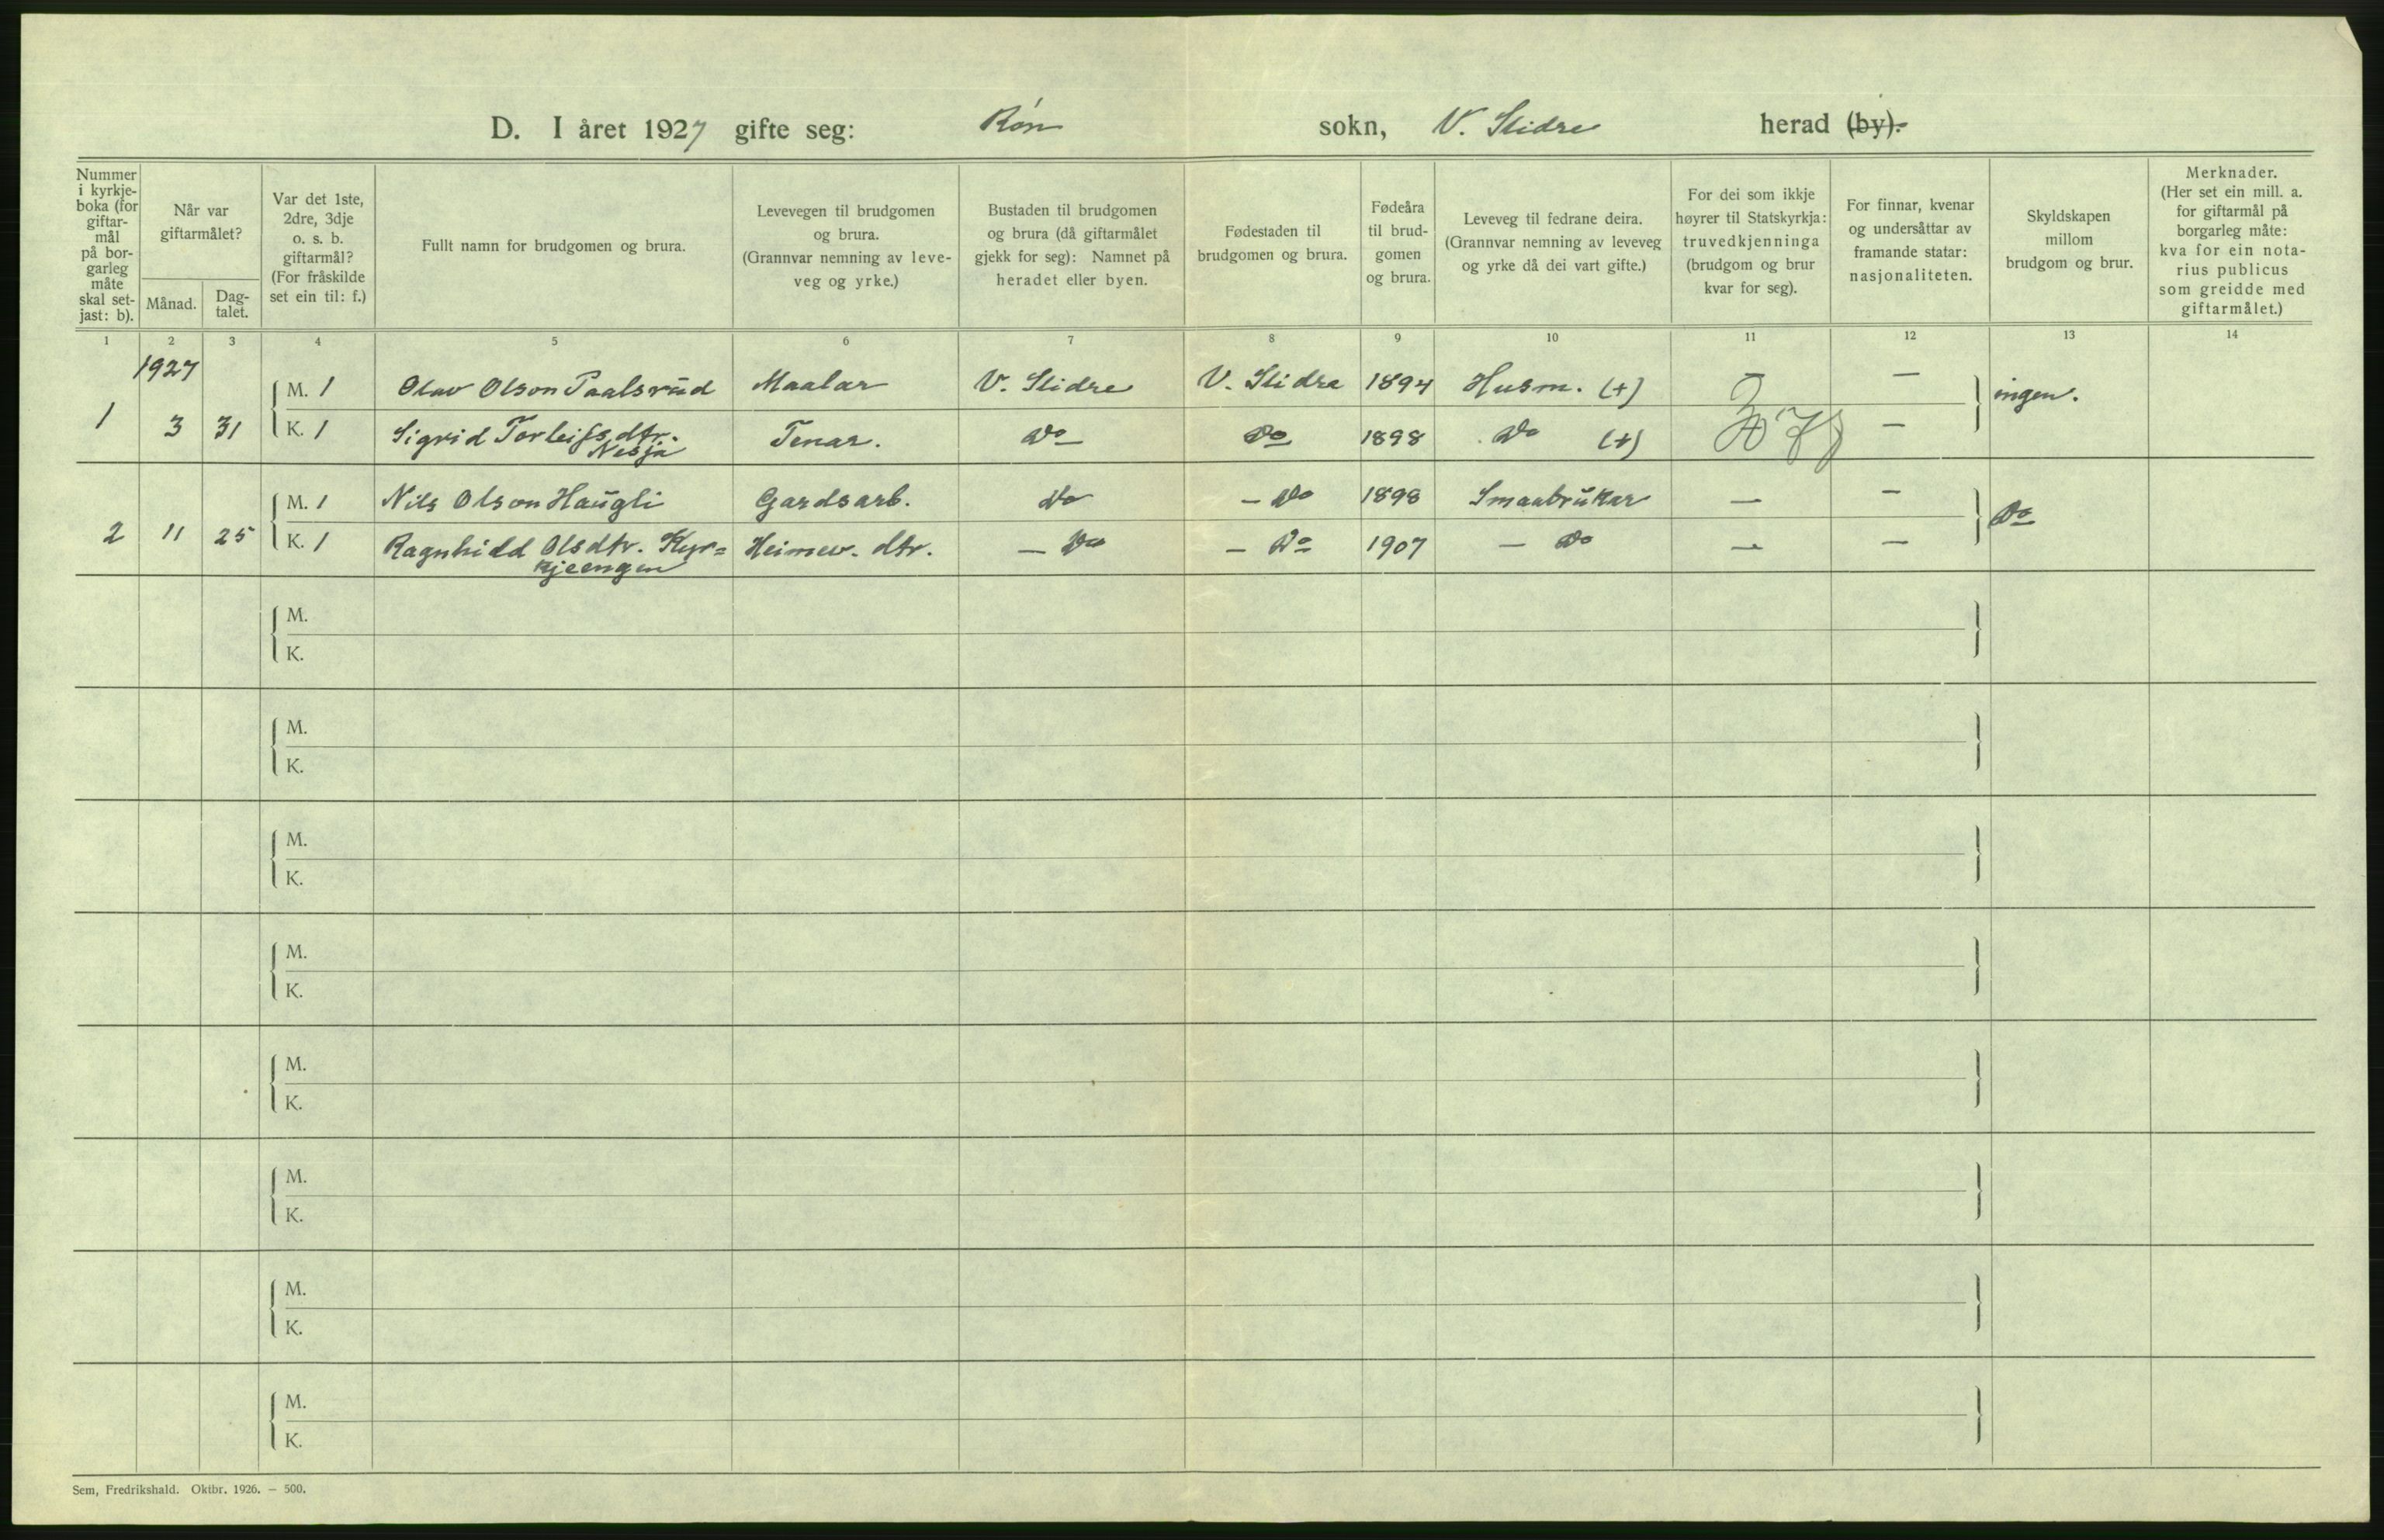 D. I året 1927 gifte seg: Røn sokn, V. Slidre herad (by).
Nummer i kyrkje-boka (for giftar-mål på bor-garleg måte skal set-jast: b).
Når var giftarmålet?
Månad.
Dag-talet.
Var det 1ste, 2dre, 3dje o. s. b. giftarmål? (For fråskilde set ein til: f.)
Fullt namn for brudgomen og brura.
Levevegen til brudgomen og brura. (Grannvar nemning av leve-veg og yrke.)
Bustaden til brudgomen og brura (då giftarmålet gjekk for seg): Namnet på heradet eller byen.
Fødestaden til brudgomen og brura.
Fødeåra til brud-gomen og brura.
Leveveg til fedrane deira. (Grannvar nemning av leveveg og yrke då dei vart gifte.)
For dei som ikkje høyrer til Statskyrkja: truvedkjenninga (brudgom og brur kvar for seg).
For finnar, kvenar og undersåttar av framande statar: nasjonaliteten.
Skyldskapen millom brudgom og brur.
Merknader. (Her set ein mill. a. for giftarmål på borgarleg måte: kva for ein nota-rius publicus som greidde med giftarmålet.)
1 2 3 4 5 6 7 8 9 10 11 12 13 14
1927
M. 1 Olav Olson Paalsrud Maalar V. Slidre V. Slidre 1894 Husm. (+) — — ingen.
1 3 31 K. 1 Sigrid Torleifsdtr. Tenar. Do Do 1898 Do (+) —
Nesja
M. 1 Nils Olson Haugli Gardsarb. Do — Do 1898 Smaabrukar — — Do
2 11 25 K. 1 Ragnhild Olsdtr. Kyr= Heimev. dtr. — Do — Do 1907 — Do — —
kjeengen
M.
K.
M.
K.
M.
K.
M.
K.
M.
K.
M.
K.
M.
K.
M.
K.
Sem, Fredrikshald. Oktbr. 1926. — 500.